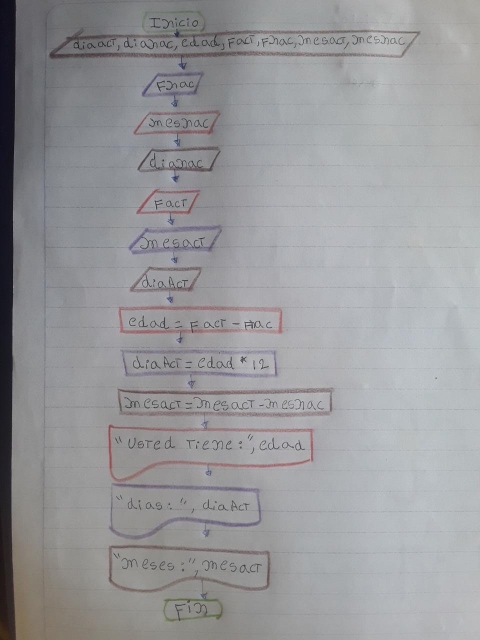 Inicio
diaact, dianac, edad, Fact, Fnac, mesact, mesnac
Fnac
mesnac
dianac
Fact
mesact
diaAct
edad = Fact - Fnac
diaAct = edad * 12
mesact = mesact - mesnac
"Usted Tiene:", edad
"dias:", diaAct
"meses:", mesact
Fin